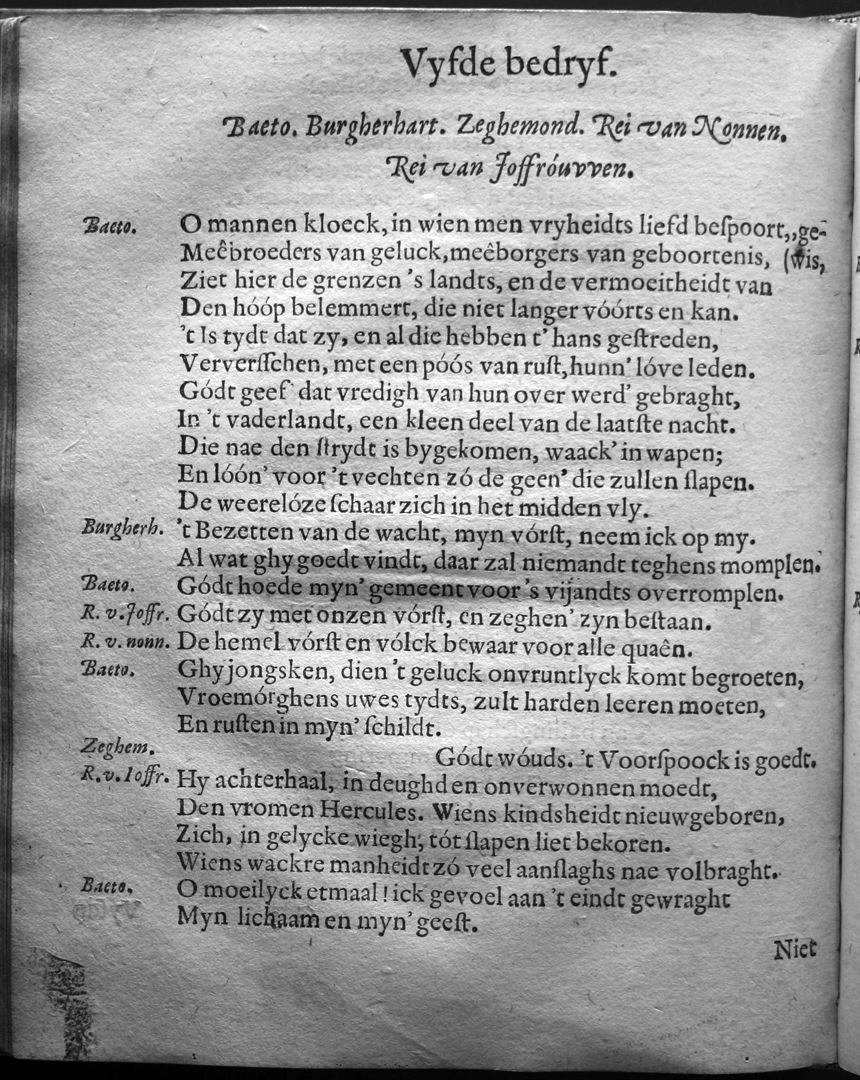 Vyfde bedryf.
Baeto. Burgherhart. Zeghemond. Rei van Nonnen.
Rei van Joffróuvven.
Baeto. O mannen kloeck, in wien men vryheidts liefd beſpoort,,ge-
Meêbroeders van geluck, meêborgers van geboortenis, (wis,
Ziet hier de grenzen 's landts, en de vermoeitheidt van
Den hóóp belemmert, die niet langer vóórts en kan.
't Is tydt dat zy, en al die hebben t' hans geſtreden,
Ververſſchen, met een póós van ruſt, hunn' lóve leden.
Gódt geef dat vredigh van hun over werd' gebraght,
In 't vaderlandt, een kleen deel van de laatſte nacht.
Die nae den ſtrydt is bygekomen, waack' in wapen;
En lóón' voor 't vechten zó de geen' die zullen ſlapen.
De weerelóze ſchaar zich in het midden vly.
Burgherh. 't Bezetten van de wacht, myn vórſt, neem ick op my.
Al wat ghy goedt vindt, daar zal niemandt teghens momplen.
Baeto. Gódt hoede myn' gemeent voor 's vijandts overromplen.
R. v. Joffr. Gódt zy met onzen vórſt, en zeghen' zyn beſtaan.
R. v. nonn. De hemel vórſt en vólck bewaar voor alle quaên.
Baeto. Ghy jongsken, dien 't geluck onvruntlyck komt begroeten,
Vroemórghens uwes tydts, zult harden leeren moeten,
En ruſten in myn' ſchildt.
Zeghem. Gódt wóuds. 't Voorſpoock is goedt.
R. v. Ioffr. Hy achterhaal, in deughd en onverwonnen moedt,
Den vromen Hercules. Wiens kindsheidt nieuwgeboren,
Zich, in gelycke wiegh, tót ſlapen liet bekoren.
Wiens wackre manheidt zó veel aanſlaghs nae volbraght.
Baeto. O moeilyck etmaal! ick gevoel aan 't eindt gewraght
Myn lichaam en myn' geeſt.
Niet